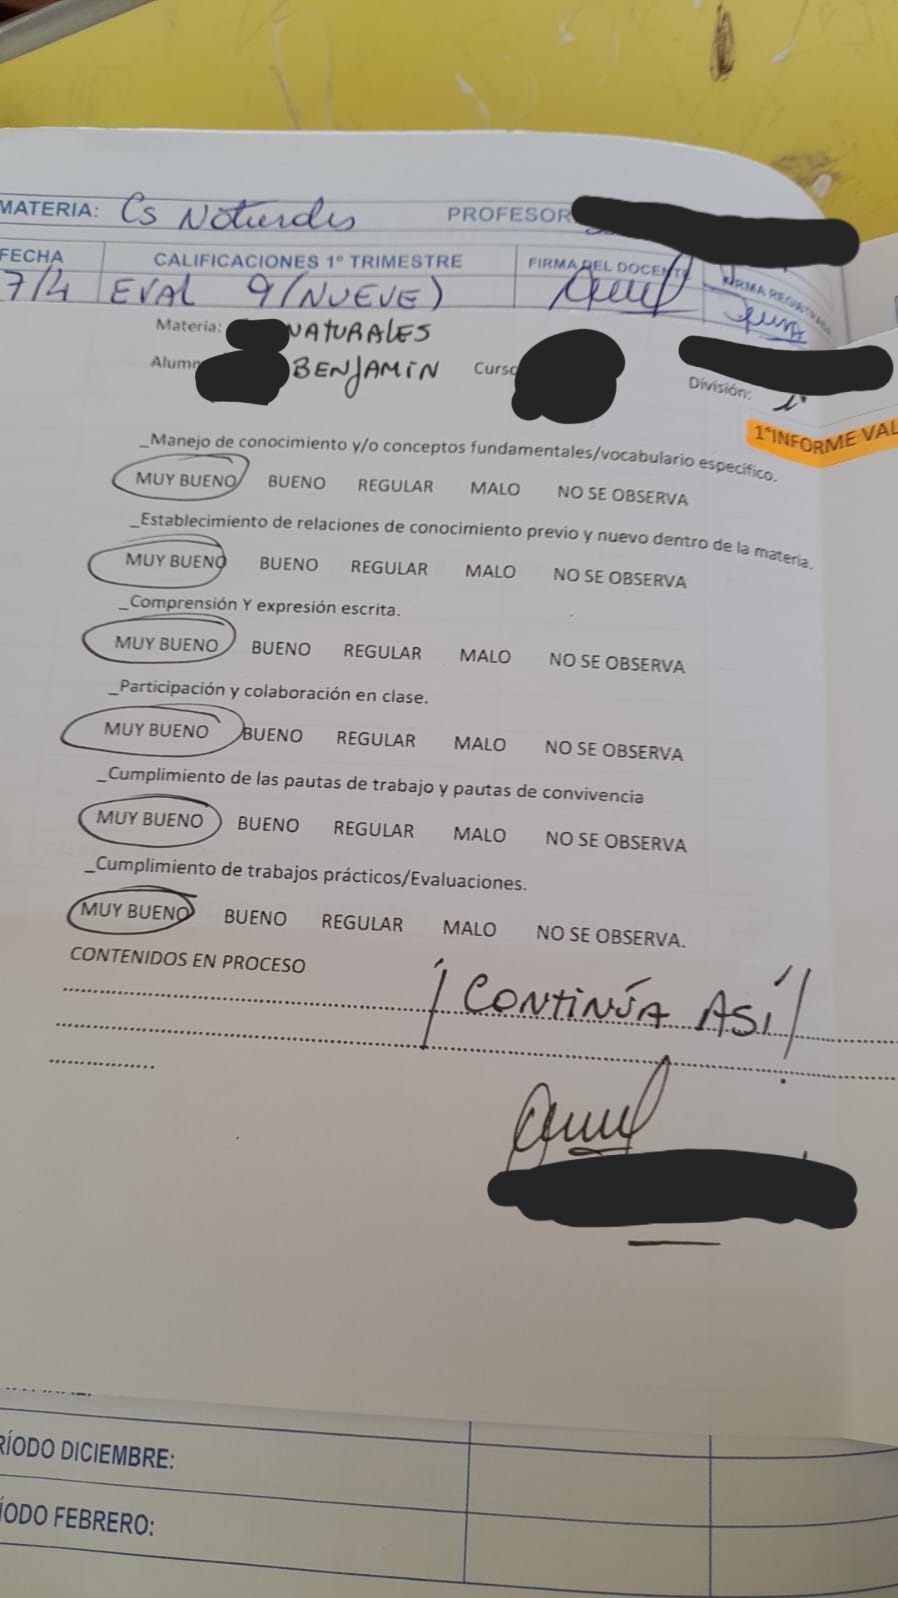 MATERIA: Cs Naturales PROFESOR
FECHA CALIFICACIONES 1º TRIMESTRE FIRMA DEL DOCENTE
7/4 EVAL 9 (NUEVE)
Materia: NATURALES
BENJAMIN
División: 1°
1°INFORME VAL
_Manejo de conocimiento y/o conceptos fundamentales/vocabulario específico.
MUY BUENO BUENO REGULAR MALO NO SE OBSERVA
_Establecimiento de relaciones de conocimiento previo y nuevo dentro de la materia.
MUY BUENO BUENO REGULAR MALO NO SE OBSERVA
_Comprensión Y expresión escrita.
MUY BUENO BUENO REGULAR MALO NO SE OBSERVA
_Participación y colaboración en clase.
MUY BUENO BUENO REGULAR MALO NO SE OBSERVA
_Cumplimiento de las pautas de trabajo y pautas de convivencia
MUY BUENO BUENO REGULAR MALO NO SE OBSERVA
_Cumplimiento de trabajos prácticos/Evaluaciones.
MUY BUENO BUENO REGULAR MALO NO SE OBSERVA.
CONTENIDOS EN PROCESO
¡CONTINÚA ASÍ!
RÍODO DICIEMBRE:
ÍODO FEBRERO: